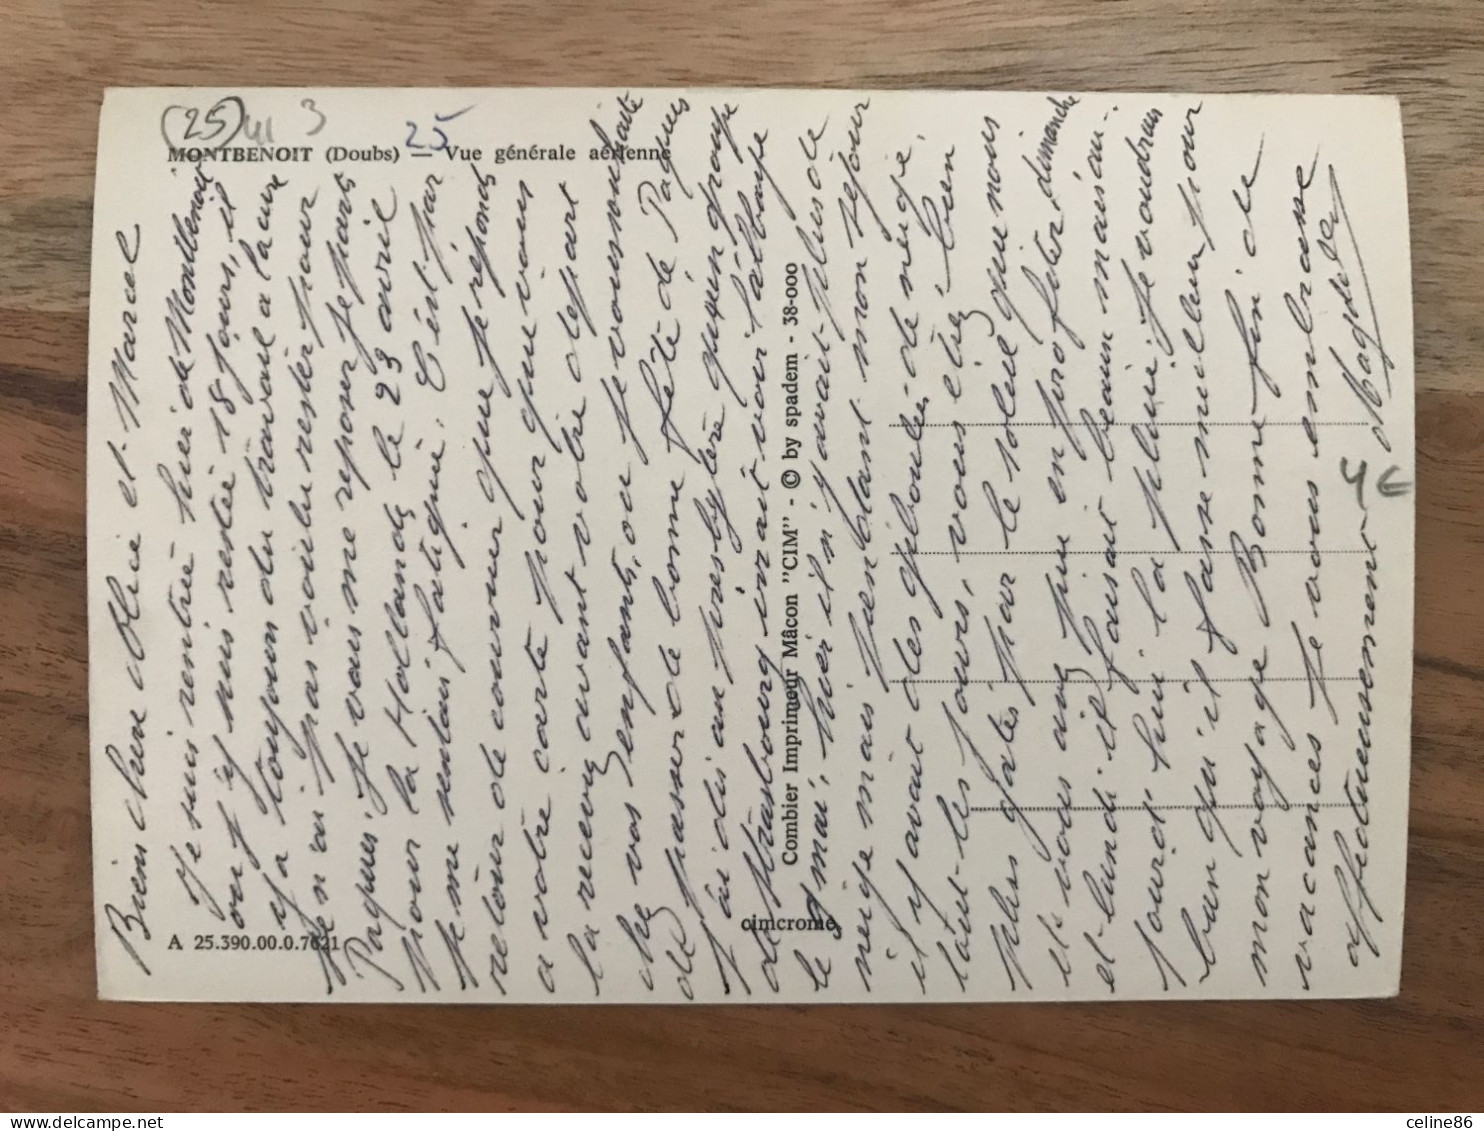 (25) 41 3
25
MONTBENOIT (Doubs) — Vue générale aérienne
Combier Imprimeur Mâcon "CIM" - © by spadem - 38-000
cimcrome
A 25.390.00.0.7621
4 €
Bien chère et Marcel
Je suis rentrée hier de Montbenoit
ou j'y suis restée 18 jours, il
y a toujours du travail a la cure
je n'ai pas voulu rester pour
Paques, je vais me reposer je pars
pour la Hollande le 23 avril
je me sentais fatiguée. C'est par
retour de courrier que je réponds
a votre carte pour que vous
la receviez avant votre depart
chez vos enfants, ou je vous souhaite
de passer de bonne fête de Paques
j'ai dis au presbytère qu'un groupe
de Strasbourg irait voir l'abbaye
le 9 mai, hier il n'y avait plus de
neige mais pendant mon sejour
il y avait des giboulées de neige
tout les jours, vous étiez bien
plus gatés par le soleil que nous
et vous avez pu en profiter dimanche
et lundi il faisait beau mais au-
jourd'hui la pluie. Je voudrais
bien qu'il fasse meilleur pour
mon voyage Bonne fin de
vacances Je vous embrasse
affectueusement